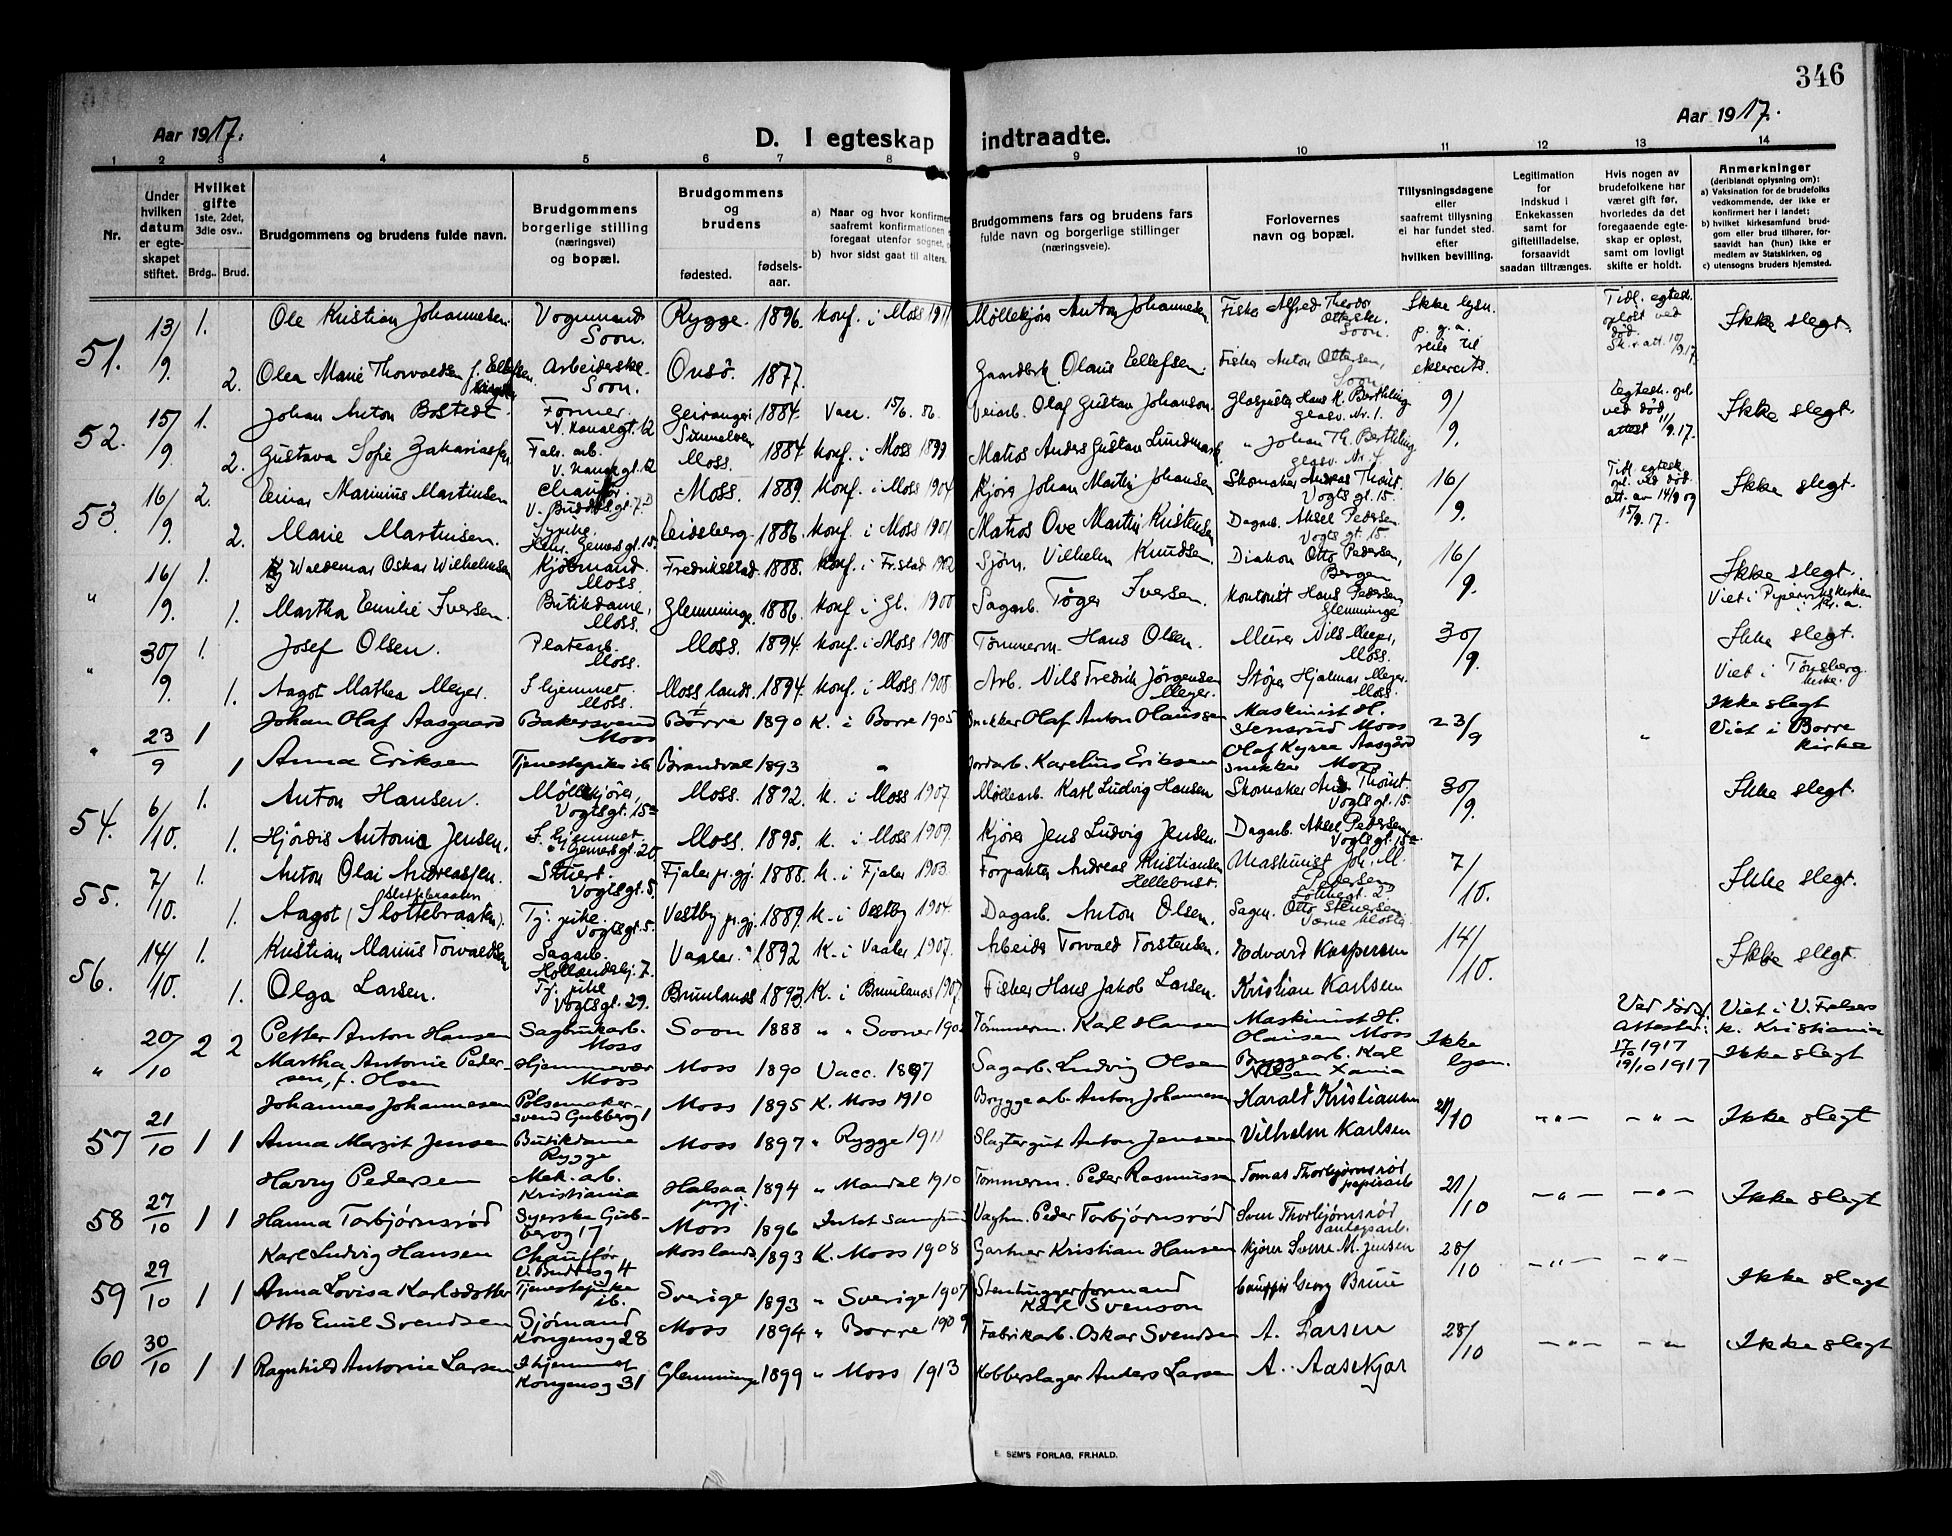 346
Aar 1917.
Aar 1917.
D. I egteskap indtraadte.
1 2 3 4 5 6 7 8 9 10 11 12 13 14
Nr.
Under hvilken datum er egteskapet stiftet.
Hvilket gifte 1ste, 2det, 3die osv..
Brdg.. Brud.
Brudgommens og brudens fulde navn.
Brudgommens borgerlige stilling (næringsvei) og bopæl.
Brudgommens og brudens
fødested. fødselsaar.
a) Naar og hvor konfirmeret
saafremt konfirmationen
foregaat utenfor sognet,
b) hvor sidst gaat til alters.
Brudgommens fars og brudens fars fulde navn og borgerlige stillinger (næringsveie).
Forlovernes navn og bopæl.
Tillysningsdagene eller saafremt tillysning ei har fundet sted. efter hvilken bevilling.
Legitimation for Indskud i Enkekassen samt for giftetilladelse, forsaavidt saadan tiltrænges.
Hvis nogen av brudefolkene har været gift før, hvorledes da det foregaaende egteskap er opløst, samt om lovligt skifte er holdt.
Anmerkninger
(deriblandt oplysning om):
a) Vaksination for de brudefolks vedkommende, der ikke er konfirmert her i landet;
b) hvilket kirkesamfund brudgom eller brud tilhører, forsaavidt han (hun) ikke er medlem av Statskirken, og
c) utensogns bruders hjemsted.
51. 13/9. 1. Ole Kristian Johannesen. Vognmand Soon. Rygge. 1896. konf. i Moss 1911 Møllekjører Anton Johannesen. Fisker Alfred Theodor Ottersen. Soon. Ikke lysn. p. g. a. reise til eksercits. Tidl. egtesk. opløst ved død. Sk. att. 10/9.17. Ikke slegt.
2. Olea Marie Thorvaldsen f. Ellefsen Arbeiderske Soon. Onsø. 1877. Gaardbrk. Olaus Ellefsen. Fisker Anton Ottersen, Soon.
52. 15/9. 1. Johan Anton Bostedt. Former N. Kanalgt. 12 1884. Vacc. 15/6. 86. Veiarb. Olaf Gustav Johanson. Glaspuster Hans K. Berthling glasv. Nr. 1. 9/9. Egtesk. opl. ved død attest 11/9.17. Ikke slegt.
2. Gustava Sofie Zakariassen Fabr. arb. V. Kanalgt. 12 Moss. 1884. konf. i Moss Matros Anders Gustav Lundmark. " Johan Th. Berthling glasv. Nr. 7
53. 16/9. 2. Einar Marinius Martinsen Chauffør. Moss. 1889. konf. i Moss 1904 Kjører Johan Martin Johansen Skomaker Andreas Thorst. Vogts gt. 15. 16/9. Tidl. egtesk. opl. ved død. att. av 14/9 og 15/9.17. Ikke slegt.
2. Marie Martinsen. Sypike Eidsberg. 1886. konf. i Moss 1901 Matros Ove Martin Kristensen Dagarb. Aksel Pedersen Vogts gt. 15.
" 16/9. 1. Waldemar Oskar Wilhelmsen Kjøbmand. Moss. Fredriksstad. 1888. konf. i Fr.stad 1902 Sjøm. Vilhelm Knudsen. Diakon Otto Pedersen, Bergen 16/9. Ikke slegt. Viet i Pipervikskirken i Kr.a.
1. Martha Emilie Iversen. Butikdame, Moss. Glemminge. 1886. konf. i Gl. 1900 Sagarb. Tøger Iversen. Kontorist Hans Pedersen Glemminge
" 30/9. 1. Josef Olsen. Platearb. Moss. Moss. 1894. konf. i Moss 1908 Tømmerm. Hans Olsen. Murer Nils Meyer, Moss. 30/9. Ikke slegt. Viet i Tønsberg kirke.
1. Aagot Mathea Meyer. I hjemmet. Moss. Moss lands. 1894. konf. i Moss 1908 Arb. Nils Fredrik Jørgensen Meyer. Støper Hjalmar Meyer. Moss.
" 23/9 1 Johan Olaf Aasgaard Bakersvend Moss Borre 1890 K. i Borre 1905 Snekker Olaf Anton Olaussen Maskinist H. Stensrud Moss 23/9 " Ikke slegt Viet i Borre kirke
1 Anna Eriksen Tjenestepike ib Brandval 1893 " Jordarb. Karelius Eriksen Olaf Kyrre Aasgård snekker Moss
54. 6/10. 1. Anton Hansen. Møllekjører, Vogtsgt. 15 Moss. 1892. k. i Moss 1907. Møllearb. Karl Ludvig Hansen Skomaker And. Thorst. Vogts gt. 15 30/9. Ikke slegt.
1. Hjørdis Antonie Jensen. I hjemmet gt. 20. Moss. 1895. k. i Moss 1909. Kjører Jens Ludvig Jensen. Dagarb. Aksel Pedersen. Vogtsgt. 15
55. 7/10. 1. Anton Olai Andreassen. Stuert. Vogtsgt. 5. Fjaler pr.gj. 1888. k. i Fjaler 1903. Forpakter Andreas Kristiansen Hellebust. Maskinist Joh. M. 7/10. Ikke slegt.
1. Aagot (Slottebraaten). Tj. pike. Vogtsgt. 5. Vestby pr.gj. 1889. k. i Vestby 1904. Dagarb. Anton Olsen. Sagm. Otto Stenersen Værne kloster.
56. 14/10. 1. Kristian Marius Torvaldsen Sagarb. 7. Vaaler. 1892 K. i Vaaler 1907. Arbeider Torvald Torstensen. Edvard Kaspersen 14/10. Ikke slegt.
1. Olga Larsen. Tj. pike Vogtsgt. 29. Brunlanes 1893. K. i Brunlanes 1907. Fisker Hans Jakob Larsen. Kristian Karlsen
" 20/10 2 2 Petter Anton Hansen Sagbrukarb. Moss Soon 1888 " " Sooner Tømmerm. Karl Hansen Maskinist H. Olausen Moss Ikke lysn. Ved død. Attester: 17/10 1917 19/10 1917 Viet i V. Frelsers k. Kristiania Ikke slegt
Martha Antonie Pedersen, f. Olsen Hjemmevær Moss Moss 1890 Vacc. 1897 Sagarb. Ludvig Olsen Bryggearb. Karl Nilsen Xania
57 21/10 1 1 Johannes Johannesen Pølsemakersvend Gubberog 1 Moss 1895 K. Moss 1910 Bryggearb. Anton Johannesen Harald Kristiansen 21/10 – " – – " – Ikke slegt
Anna Margit Jensen Butikdame Rygge Moss 1897 " Rygge 1911 Slagtergut Anton Jensen Vilhelm Karlsen
58 27/10 1 1 Harry Pedersen Mek. arb. Kristiania Halsaa prgj. 1894 " Mandal 1910 Tømmerm. Peder Rasmussen Tomas Thorbjørnsrød papirarb 21/10 – " – – " – Ikke slegt
Hanna Torbjørnsrød Syerske Gubberog 17 Moss 1896 Intet samfund Vagtm. Peder Torbjørnsrød Sven Thorbjørnsrød anlægsarb.
59 29/10 1 1 Karl Ludvig Hansen Chauffør V. Budesg 4 Moss lands 1893 K. Moss 1908 Gartner Kristian Hansen Kjører Sverre M. Jensen 28/10 – " – – " – Ikke slegt
Anna Lovisa Karlsdotter Tjenestepike ib. Sverige 1893 " Sverige 1907 Stenhuggerformand Karl Svenson Georg Bruu
60 30/10 1 1 Otto Emil Svendsen Sjømand Kongensg 28 Moss 1894 " Borre 1909 Fabrikarb. Oskar Svendsen A. Larsen 28/10 – " – – " – Ikke slegt
Ragnhild Antonie Larsen I hjemmet Kongensg 31 Glemminge 1899 " Moss 1913 Kobberslager Anders Larsen A. Aasekjær
E. SEM'S FORLAG, FR.HALD.